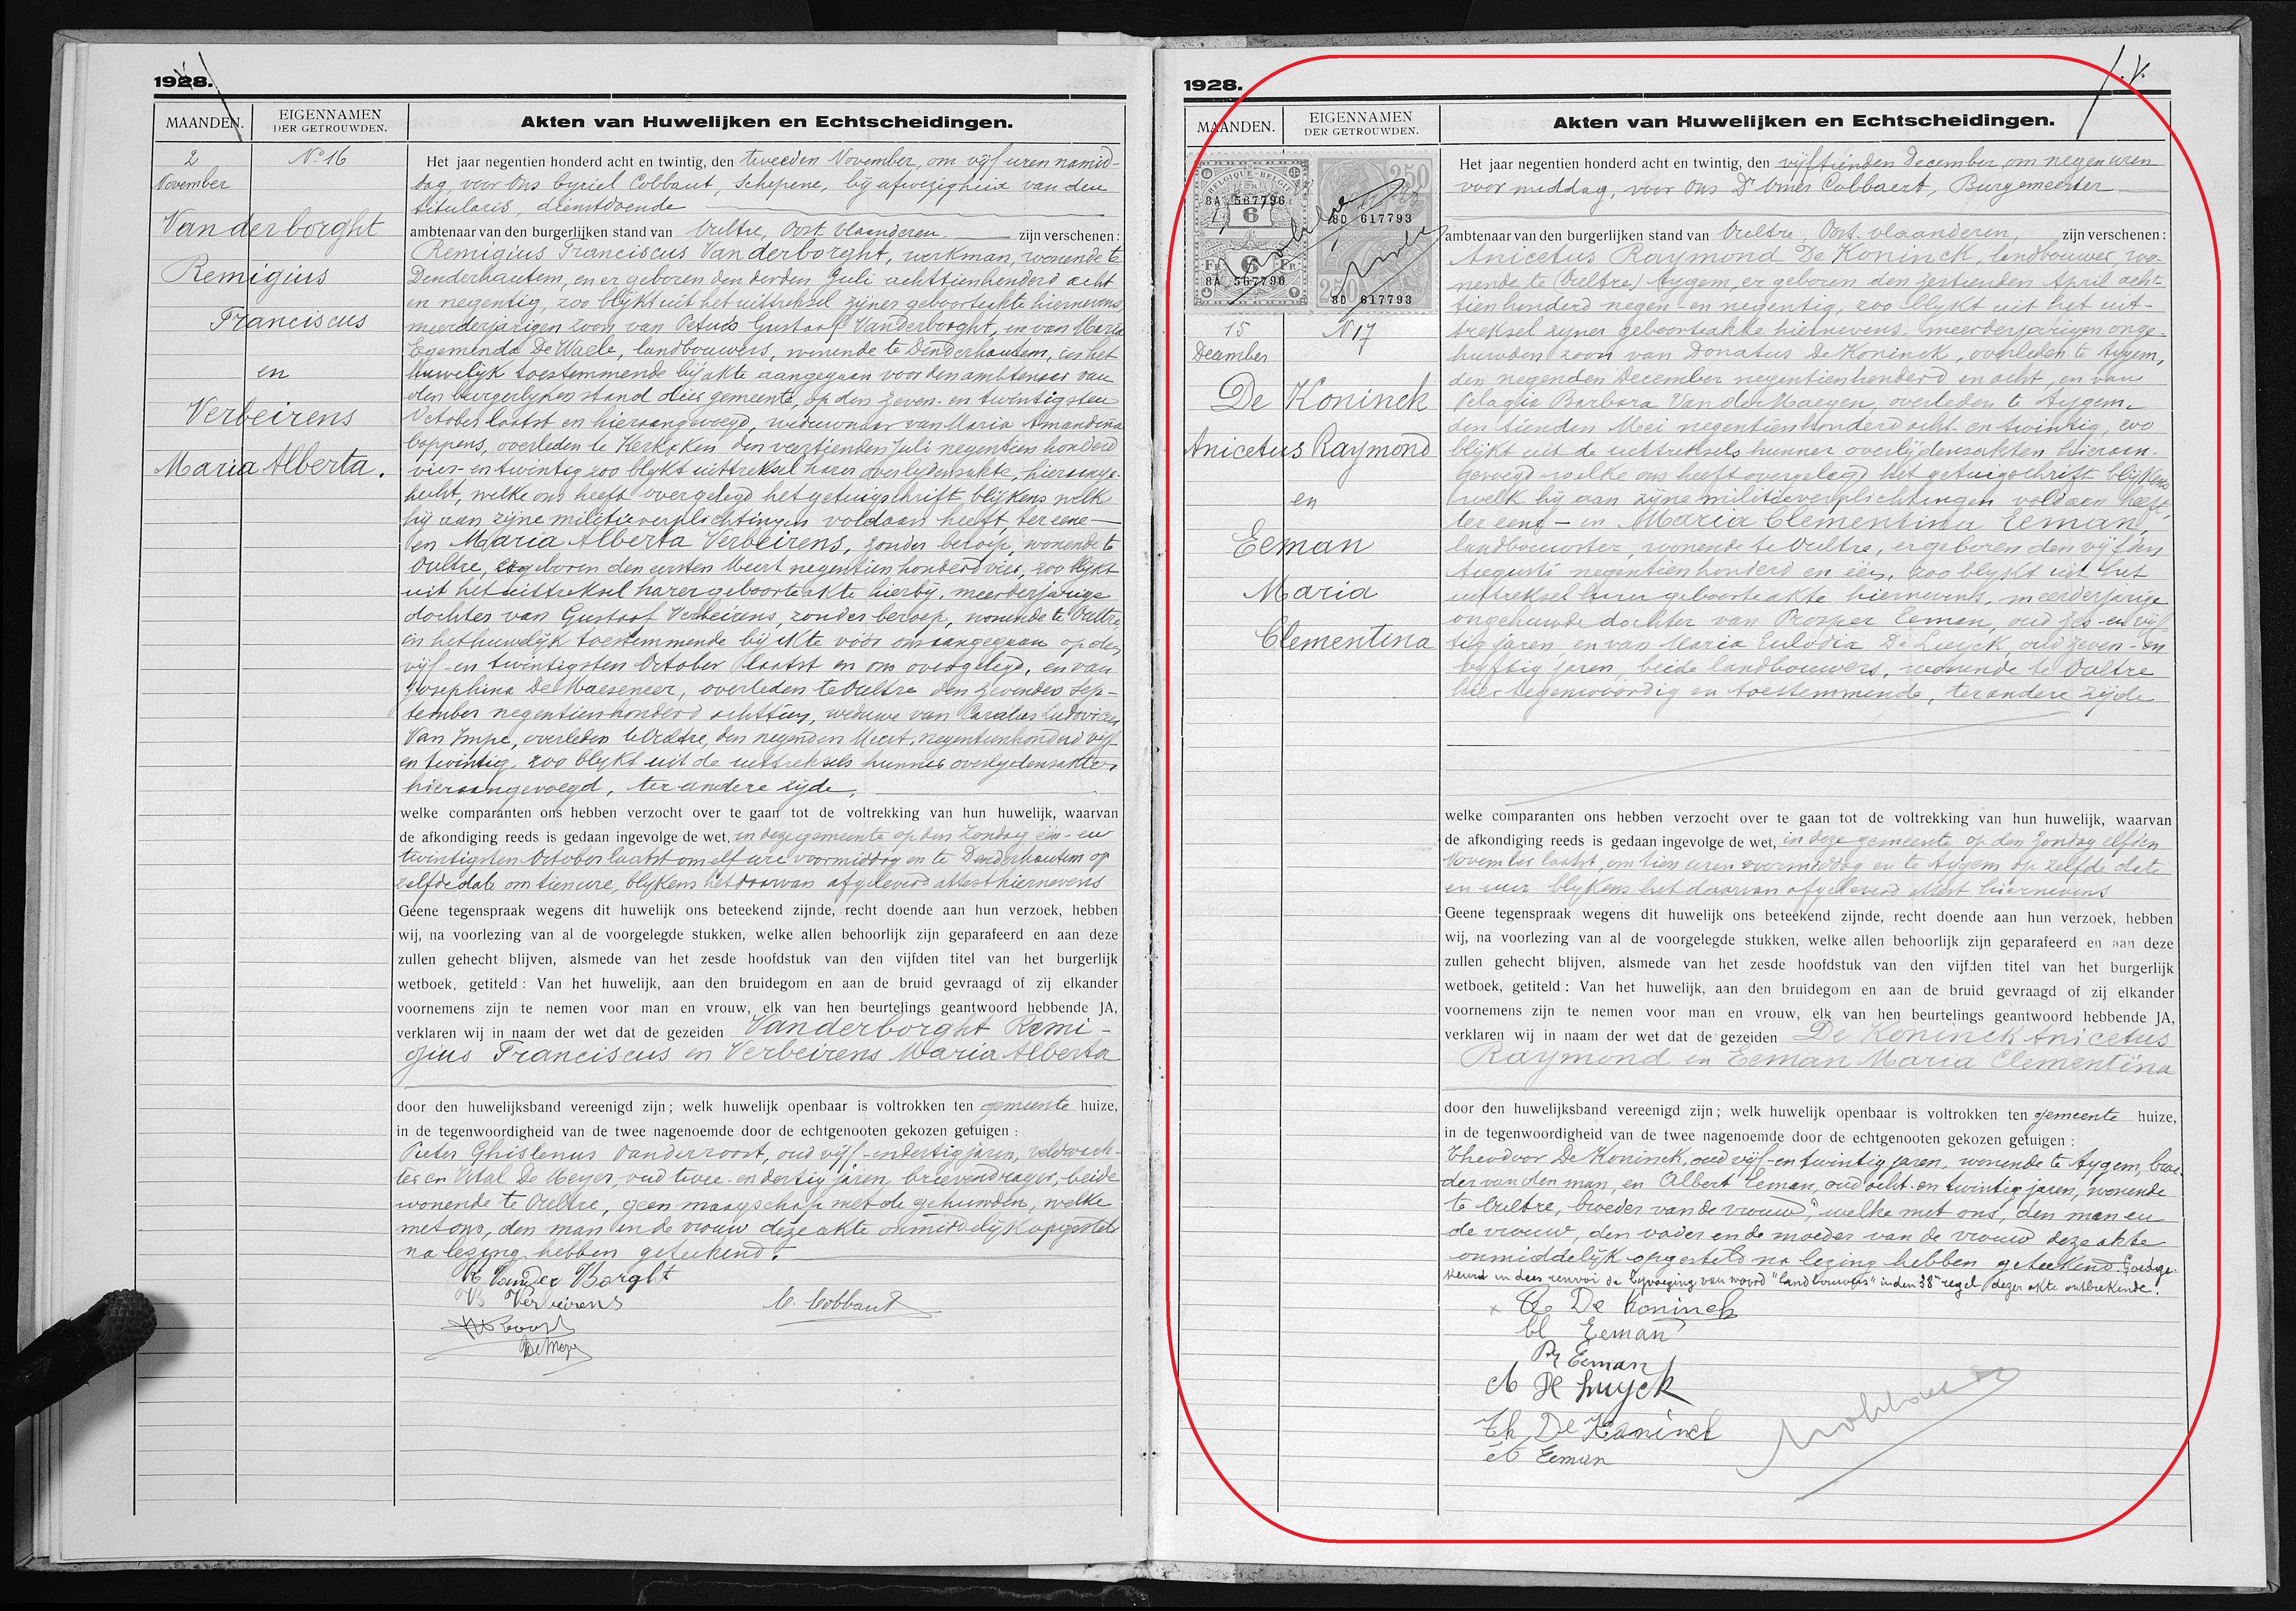 1928.
MAANDEN.
EIGENNAMEN
DER GETROUWDEN.
Akten van Huwelijken en Echtscheidingen.
2
November
No 16
Vanderborght
Remigius
Franciscus
en
Verbeirens
Maria Alberta.
Het jaar negentien honderd acht en twintig, den tweeden November, om vijf uren namid-
dag, voor Ons Cyriel Cobbaut, Schepene, bij afwezigheid van den
titularis, dienstdoende
ambtenaar van den burgerlijken stand van Oultre, Oost Vlaanderen zijn verschenen:
Remigius Franciscus Vanderborght, werkman, wonende te
Denderhautem, en er geboren den derden Juli achttienhonderd acht
en negentig, zoo blijkt uit het uittreksel zijner geboorteakte hiernevens,
meerderjarigen zoon van Petrus Gustaaf Vanderborght, en van Maria
De Waele, landbouwers, wonende te Denderhautem, in het
huwelijk toestemmende bij akte aangegaan voor den ambtenaar van
den burgerlyken stand dier gemeente, op den zeven- en twintigsten
October laatst en hieraangevoegd, weduwnaar van Maria Amandina
Coppens, overleden te Kerksken den veertienden Juli negentien honderd
vier- en twintig zoo blykt uittreksel harer overlydensakte, hieraange-
hecht, welke ons heeft overgelegd het getuigschrift blijkens welk
hij aan zijne militieverplichtingen voldaan heeft, ter eene
en Maria Alberta Verbeirens, zonder beroep, wonende te
Oultre, er geboren den eersten Meert negentien honderd vier, zoo blijkt
uit het uittreksel harer geboorteakte hierbij, meerderjarige
dochter van Gustaaf Verbeirens, zonder beroep, wonende te Oultre
in het huwelijk toestemmende bij akte vóór ons aangegaan op den
vijf- en twintigsten October laatst en ons overgelegd, en van
Josephina De Maeseneer, overleden te Oultre den zevenden Sep-
tember negentienhonderd achttien, weduwe van Carolus Ludovicus
Van Impe, overleden te Oultre, den negenden Meert, negentienhonderd vijf
en twintig, zoo blykt uit de uittreksels hunner overlydensakten
hieraangevoegd, ter andere zijde,
welke comparanten ons hebben verzocht over te gaan tot de voltrekking van hun huwelijk, waarvan
de afkondiging reeds is gedaan ingevolge de wet, in deze gemeente op den Zondag een- en
twintigsten October laatst om elf ure voormiddag en te Denderhautem op
zelfde date om tien ure, blykens het daarvan afgeleverd attest hiernevens
Geene tegenspraak wegens dit huwelijk ons beteekend zijnde, recht doende aan hun verzoek, hebben
wij, na voorlezing van al de voorgelegde stukken, welke allen behoorlijk zijn geparafeerd en aan deze
zullen gehecht blijven, alsmede van het zesde hoofdstuk van den vijfden titel van het burgerlijk
wetboek, getiteld: Van het huwelijk, aan den bruidegom en aan de bruid gevraagd of zij elkander
voornemens zijn te nemen voor man en vrouw, elk van hen beurtelings geantwoord hebbende JA,
verklaren wij in naam der wet dat de gezeiden Vanderborght Remi-
gius Franciscus en Verbeirens Maria Alberta
door den huwelijksband vereenigd zijn; welk huwelijk openbaar is voltrokken ten gemeente huize,
in de tegenwoordigheid van de twee nagenoemde door de echtgenooten gekozen getuigen:
Pieter Ghislenus Vanderroost, oud vijf- en dertig jaren, veldwach-
ter en Vital De Meyer, oud twee- en dertig jaren, brievendrager, beide
wonende te Oultre, geen maagschap met de gehuwden, welke
met ons, den man en de vrouw deze akte onmiddelijk opgesteld
na lezing hebben geteekend.
R Vander Borght
Verbeirens
C. Cobbaut
De Meyer
1928.
MAANDEN.
EIGENNAMEN
DER GETROUWDEN.
Akten van Huwelijken en Echtscheidingen.
BELGIQUE-BELGIË
8A 567796
6
Fr 6 Fr
8A 567796
250
8D 617793
250
8D 617793
15
December
N 17
De Koninck
Anicetus Raymond
en
Eeman
Maria
Clementina
Het jaar negentien honderd acht en twintig, den vijftienden December, om negen uren
voormiddag, voor Ons Dr Omer Cobbaert, Burgemeester
ambtenaar van den burgerlijken stand van Oultre, Oost-vlaanderen, zijn verschenen:
Anicetus Raymond De Koninck, landbouwer, wo-
nende te (Oultre) Aygem, er geboren den zestienden April acht-
tienhonderd negen- en negentig, zoo blykt uit het uit-
treksel zyner geboorteakte hiernevens, meerderjarigen onge-
huwden zoon van Donatus De Koninck, overleden te Aygem,
den negenden December negentienhonderd en acht, en van
Pelagia Barbara Van der Haegen, overleden te Aygem,
den tienden Mei negentienhonderd acht- en twintig, zoo
blijkt uit de uittreksels hunner overlijdensakten hieraan-
gevoegd welke ons heeft overgelegd het getuigschrift blijkens
welk hij aan zijne militieverplichtingen voldaan heeft,
ter eene - en Maria Clementina Eeman,
landbouwster, wonende te Oultre, er geboren den vijfden
Augusti negentienhonderd en één, zoo blykt uit het
uittreksel harer geboorteakte hiernevens, meerderjarige
ongehuwde dochter van Prosper Eeman, oud zes- en vijf-
tig jaren, en van Maria Eulodia De Luyck, oud zeven- en
vyftig jaren, beide landbouwers, wonende te Oultre
hier tegenwoordig en toestemmende, ter andere zijde
welke comparanten ons hebben verzocht over te gaan tot de voltrekking van hun huwelijk, waarvan
de afkondiging reeds is gedaan ingevolge de wet, in deze gemeente op den Zondag elfden
November laatst, om tien uren voormiddag en te Aygem op zelfde date
en uur blykens het daarvan afgeleverd attest hiernevens
Geene tegenspraak wegens dit huwelijk ons beteekend zijnde, recht doende aan hun verzoek, hebben
wij, na voorlezing van al de voorgelegde stukken, welke allen behoorlijk zijn geparafeerd en aan deze
zullen gehecht blijven, alsmede van het zesde hoofdstuk van den vijfden titel van het burgerlijk
wetboek, getiteld: Van het huwelijk, aan den bruidegom en aan de bruid gevraagd of zij elkander
voornemens zijn te nemen voor man en vrouw, elk van hen beurtelings geantwoord hebbende JA,
verklaren wij in naam der wet dat de gezeiden De Koninck Anicetus
Raymond en Eeman Maria Clementina
door den huwelijksband vereenigd zijn; welk huwelijk openbaar is voltrokken ten gemeente huize,
in de tegenwoordigheid van de twee nagenoemde door de echtgenooten gekozen getuigen:
Theodoor De Koninck, oud vijf- en twintig jaren, wonende te Aygem, broe-
der van den man, en Albert Eeman, oud acht- en twintig jaren, wonende
te Oultre, broeder van de vrouw, welke met ons, den man en
de vrouw, den vader en de moeder van de vrouw deze akte
onmiddelijk opgesteld na lezing hebben geteekend. Goedge-
keurd in dees renvooi de bijvoeging van woord "landbouwers" in den 38n regel dezer akte ontbrekende.
De Koninck
Eeman
Pr Eeman
De Luyck
Th De Koninck
A Eeman